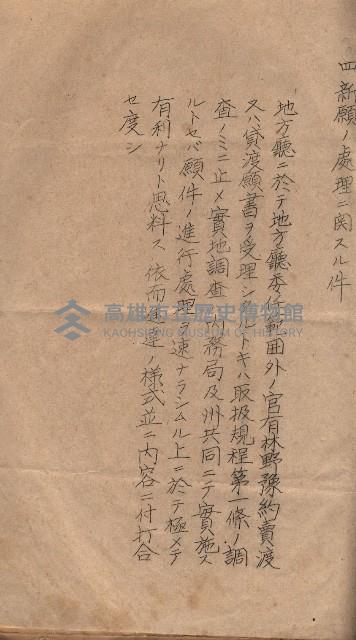 四、新願ノ處理ニ関スル件
地方廳ニ於テ地方廳委任範囲外ノ官有林野豫約賣渡
又ハ貸渡願書ヲ受理シタルトキハ取扱規程第一條ノ調
査ノミニ止メ實地調査ハ 務局及州共同ニテ實施ス
ルトセバ願件ノ進行處理 速ナラシムル上ニ於テ極メテ
有利ナリト思料ス 依而 達ノ様式並ニ内容ニ付打合
セ度シ
高雄市立歷史博物館
KAOHSIUNG MUSEUM OF HISTORY